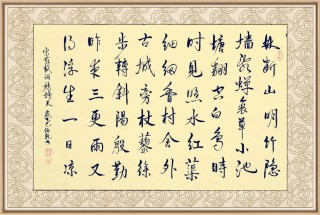 林斷山明竹隱
牆亂蟬衰草小池
塘翻空白鳥時
時見照水紅蕖
細細香村舍外
古城旁杖藜徐
步轉斜陽殷勤
昨夜三更雨又
得浮生一日涼
宋蘇軾詞鷓鴣天